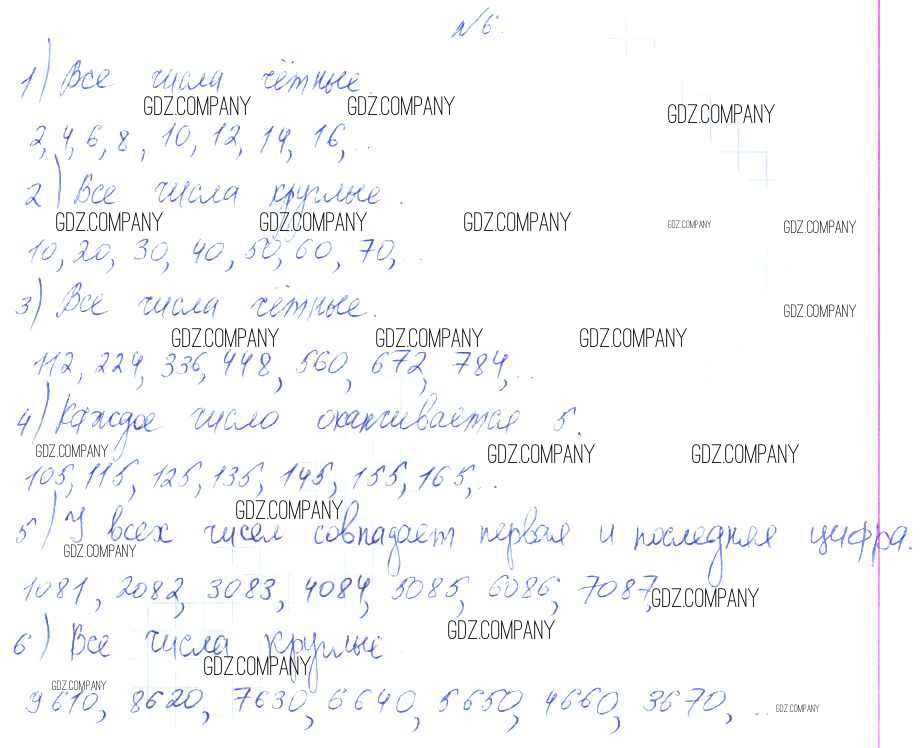 №6.
1) Все числа чётные.
GDZ.COMPANY GDZ.COMPANY GDZ.COMPANY
2, 4, 6, 8, 10, 12, 14, 16, ..
2) Все числа круглые.
GDZ.COMPANY GDZ.COMPANY GDZ.COMPANY GDZ.COMPANY GDZ.COMPANY
10, 20, 30, 40, 50, 60, 70, ..
3) Все числа чётные.
GDZ.COMPANY
GDZ.COMPANY GDZ.COMPANY GDZ.COMPANY
112, 224, 336, 448, 560, 672, 784, ..
4) Каждое число оканчивается 5.
GDZ.COMPANY GDZ.COMPANY GDZ.COMPANY
105, 115, 125, 135, 145, 155, 165, ..
GDZ.COMPANY
5) У всех чисел совпадает первая и последняя цифра.
GDZ.COMPANY
1081, 2082, 3083, 4084, 5085, 6086, 7087,
GDZ.COMPANY
6) Все числа круглые.
GDZ.COMPANY
GDZ.COMPANY
GDZ.COMPANY
9610, 8620, 7630, 6640, 5650, 4660, 3670, ..
GDZ.COMPANY